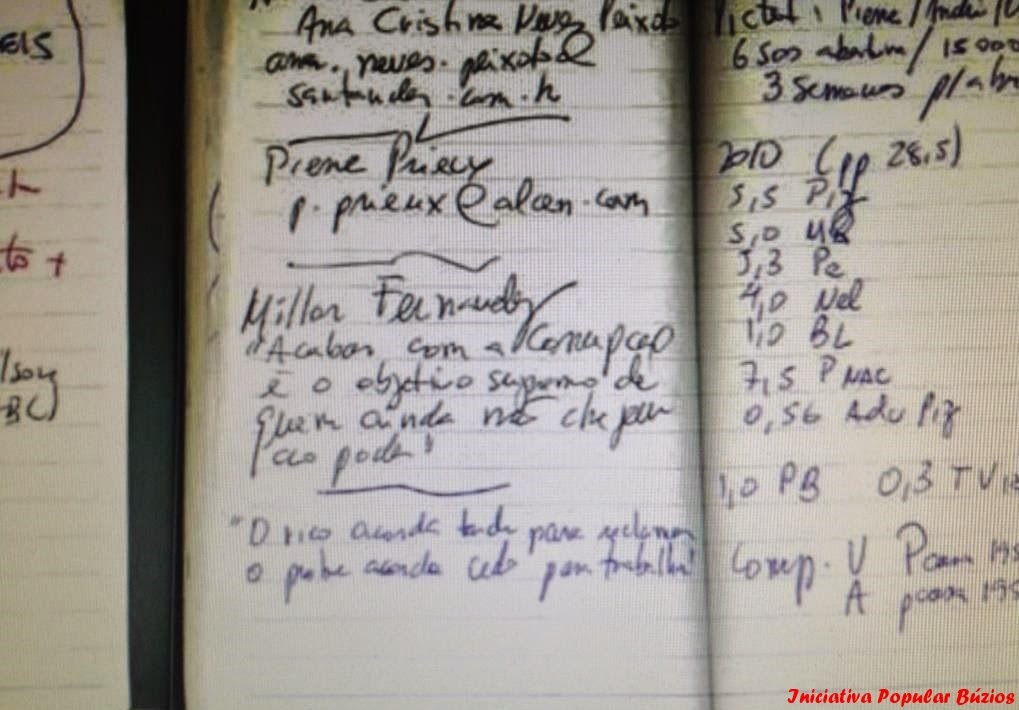 EIS
to +
BC)
Ana Cristina Neves Peixoto
ana.neves.peixoto@
santander.com.br
Pierre Prieux
p.prieux@alcen.com
Millor Fernandes
"Acabar com a Corrupção
é o objetivo supremo de
quem ainda não chegou
ao poder"
"O rico acorda tarde para reclamar
o pobre acorda cedo para trabalhar"
Pictet: Pierre/André/
6 sos abertura/15000
3 semanas p/abr
2010 (pp 28,5)
5,5 Piz
5,0 MB
5,3 Pe
4,0 Nel
1,0 BL
7,5 PNAC
0,56 Adv Piz
1,0 PB 0,3 TV
Comp. V Pcom 199
A pcom 199
Iniciativa Popular Búzios